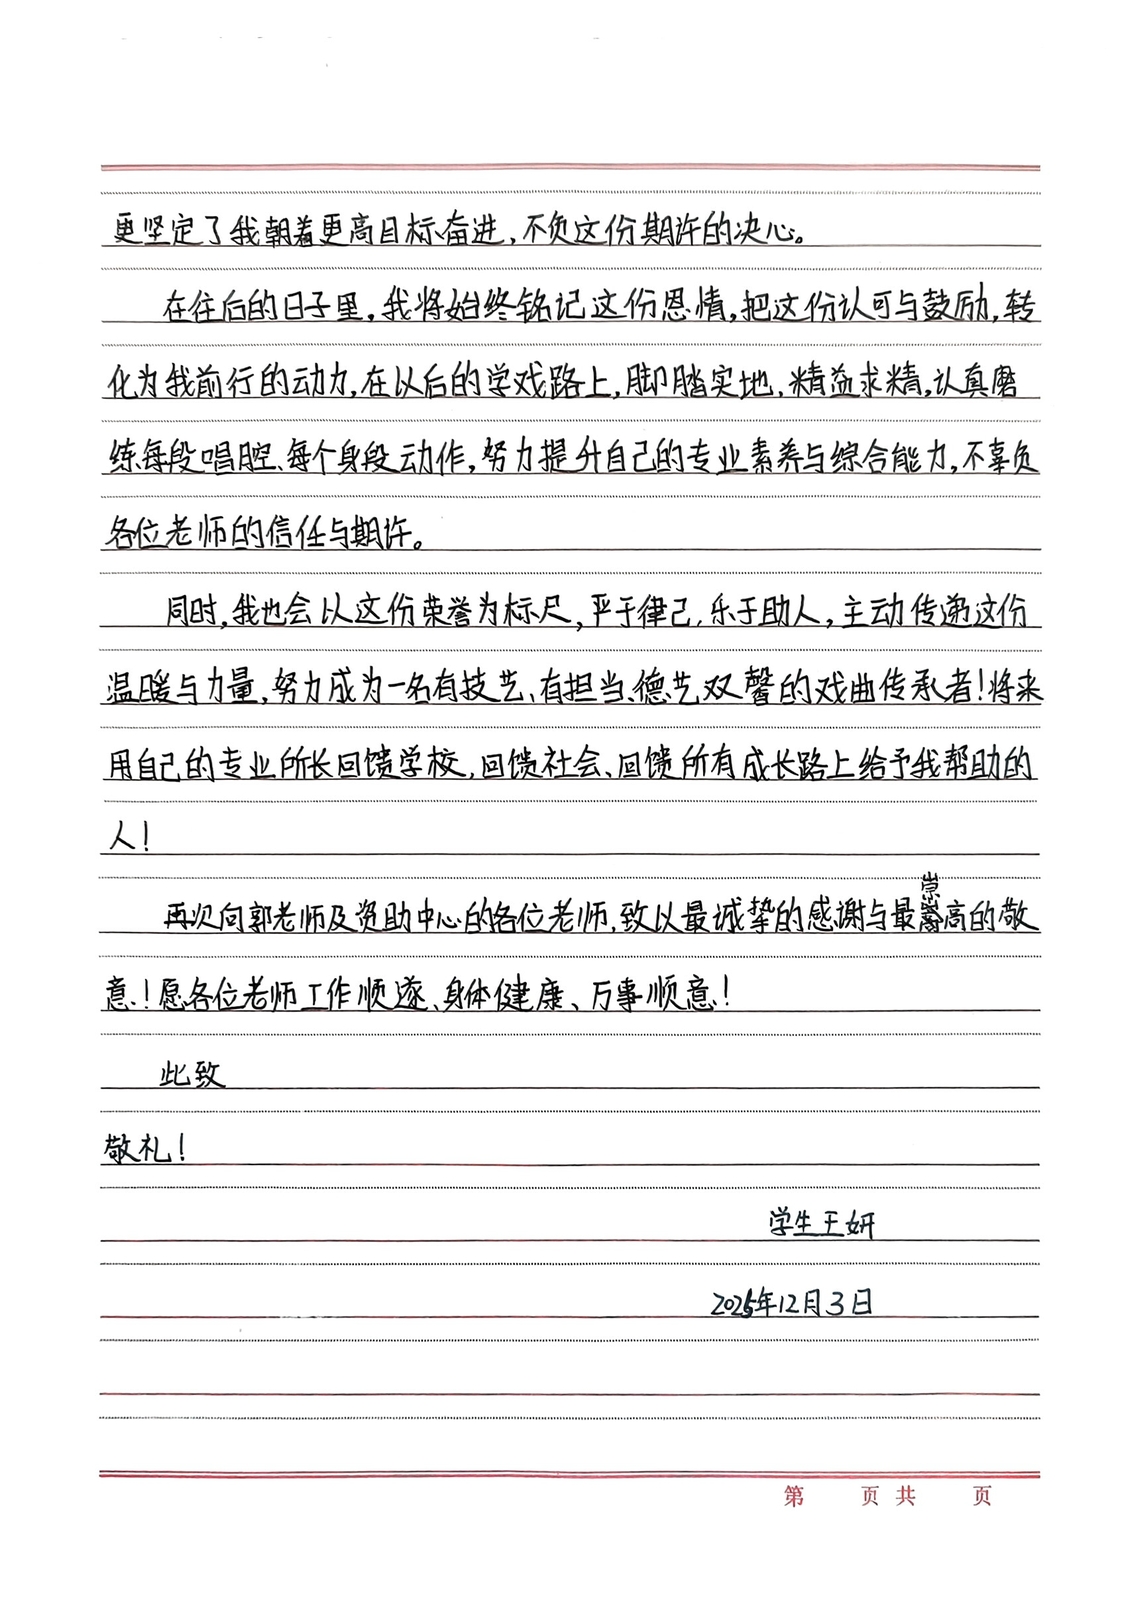 更坚定了我朝着更高目标奋进，不负这份期许的决心。
在往后的日子里，我将始终铭记这份恩情，把这份认可与鼓励，转
化为我前行的动力，在以后的学戏路上，脚踏实地，精益求精，认真磨
练每段唱腔、每个身段动作，努力提升自己的专业素养与综合能力，不辜负
各位老师的信任与期许。
同时，我也会以这份荣誉为标尺，严于律己，乐于助人，主动传递这份
温暖与力量，努力成为一名有技艺、有担当、德艺双馨的戏曲传承者！将来
用自己的专业所长回馈学校，回馈社会、回馈所有成长路上给予我帮助的
人！
再次向郭老师及资助中心的各位老师，致以最诚挚的感谢与最崇高的敬
意！愿各位老师工作顺遂、身体健康、万事顺意！
此致
敬礼！
学生王妍
2025年12月3日
第 页 共 页